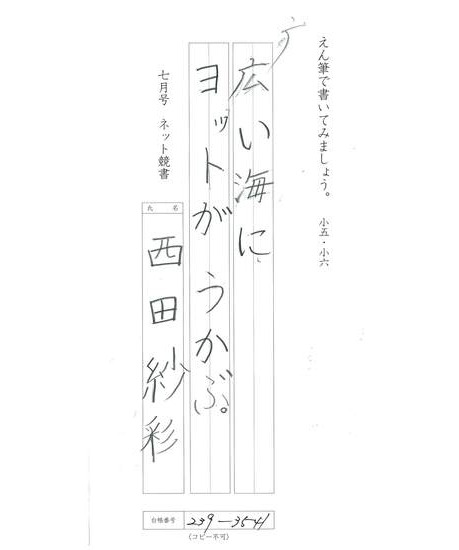 えん筆で書いてみましょう。 小五・小六
広い海に
ヨットがうかぶ。
七月号 ネット競書
氏名
西田紗彩
台帳番号 239-3541
(コピー不可)